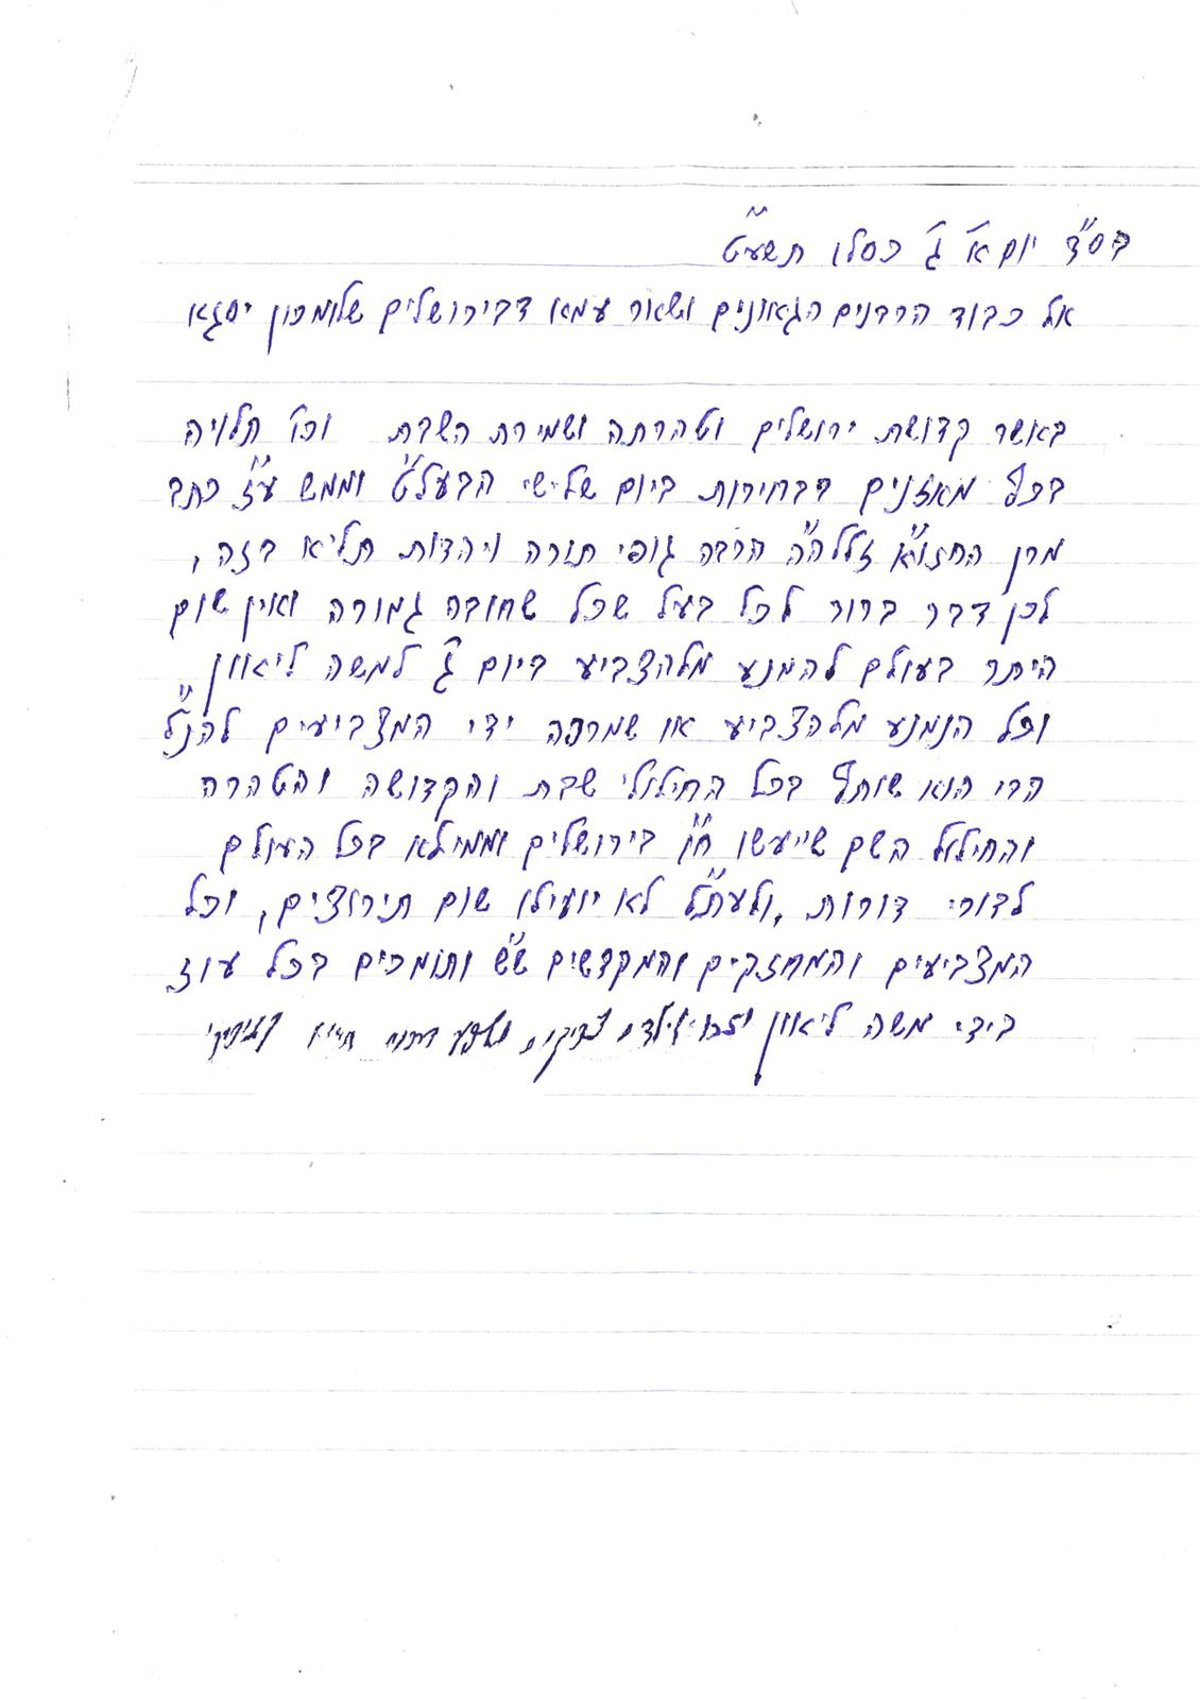 בס"ד יום א' ג' כסלו תשע"ט
אל כבוד הרבנים הגאונים ושאר עמא דבירושלים שלומכון יסגא
באשר קדושת ירושלים וטהרתה ושמירת השבת וכו' תלויה
בכף מאזנים בבחירות ביום שלישי הבעל"ט וממש ע"ז כתב
מרן החזו"א זללה"ה הרבה גופי תורה ויהדות תליא בזה,
לכן דבר ברור לכל בעל שכל שחובה גמורה ואין שום
היתר בעולם להמנע מלהצביע ביום ג' למשה ליאון
וכל הנמנע מלהצביע או שמרפה ידי המצביעים להנ"ל
הרי הוא שותף בכל החילולי שבת והקדושה והטהרה
והחילול השם שייעשו ח"ו בירושלים וממילא בכל העולם
לדורי דורות, ולעת"ל לא יועילו שום תירוצים, וכל
המצביעים והמחזקים והמקדשים ש"ש ותומכים בכל עוז
בידי משה ליאון יזכו ושפע חיים קניבסקי